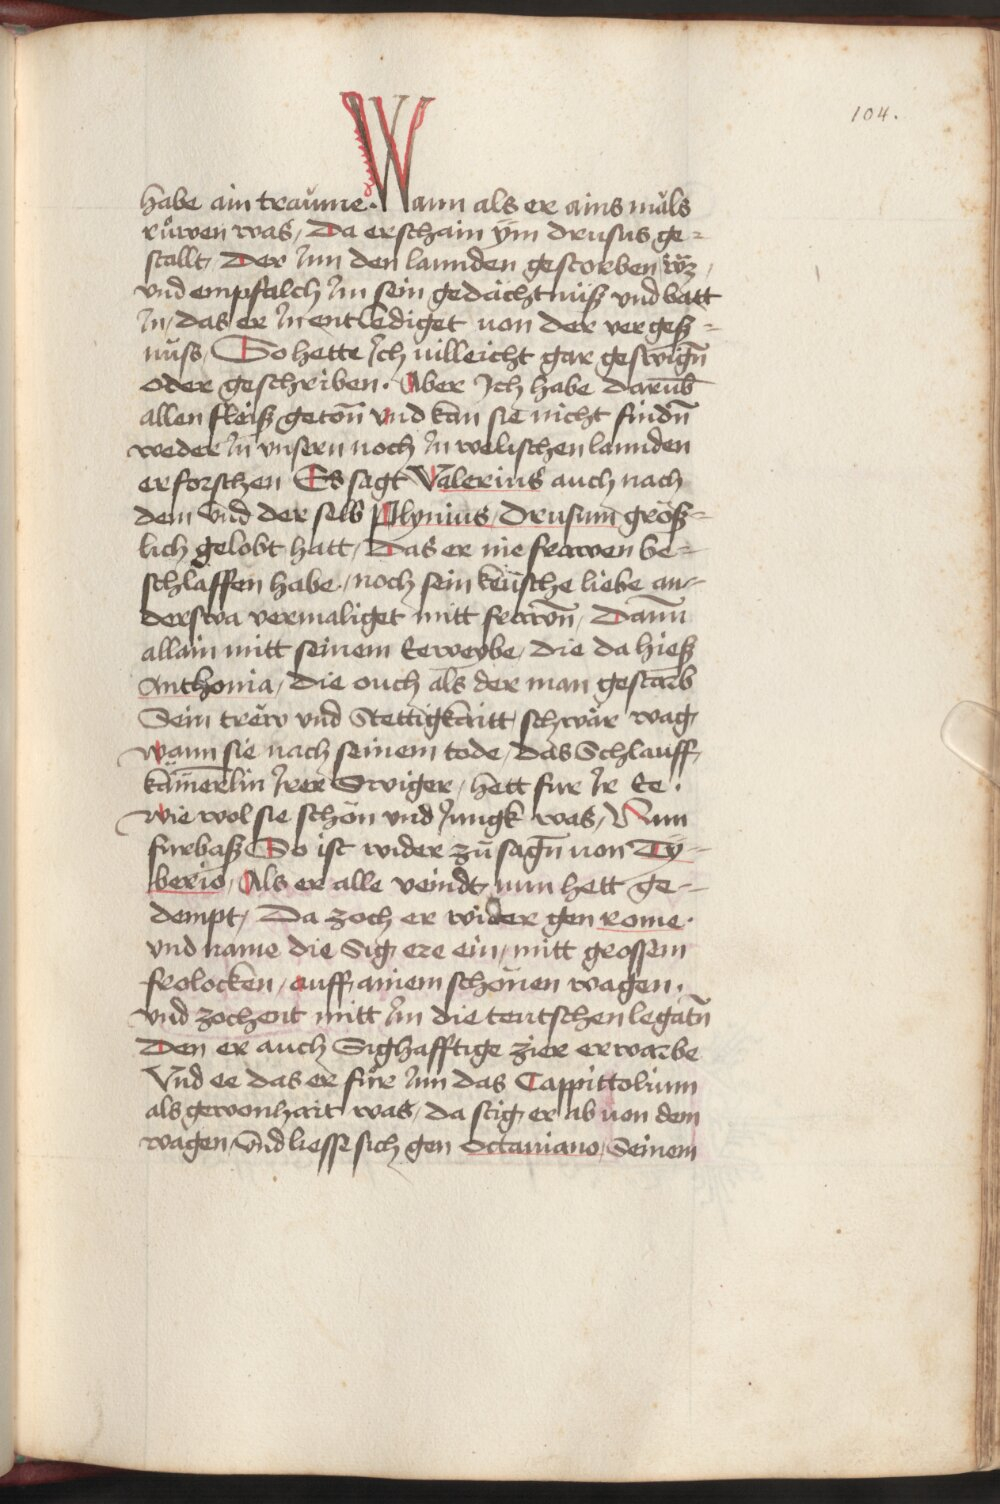 104.
habe ain traume. Wann als er ains mals
růwen was, Da erschain ÿm drusus ge=
stallt, Der Inn den lannden gestorben wz,
vnd empfalch Im sein gedächtnüß vnd batt
In, das er In entlediget von der vergeß=
nuss, So hette Ich villeicht gar geswign̄
oder geschriben. Aber Ich habe darūb
allen fleiß geton̄ vnd kan sie nicht findn̄
weder In vnsern noch In welischen lannden
erforschen Es sagt Valerius auch nach
dem vnd der selb Plynius, Drusum größ=
lich gelobt hatt, Das er nie frawen be=
schlaffen habe, noch sein keüsche liebe an=
derswa vermaliget mitt frawn̄, Dann
allain mitt seinem Eeweybe, die da hieß
Anthonia, die ouch als der man gestarb
Sein trëw vnd Stettigkaitt schwär wag,
wann sie nach seinem tode, das Schlauff,
kämerlin Irer Swiger, hett fur Ir Ee.
wie wol sie schön vnd Jungk was, Nun
furbaß So ist wider zu sagn̄ von Tÿ=
berio, Als er alle veindt, nun hett ge=
dempt, Da zoch er wider gen rome.
vnd name die Sig ere ein, mitt grossem
frolocken, auff ainem schönen wagen.
vnd zochent mitt Im die teutschen legatn̄
Den er auch Sighafftige zier erwarbe
Vnd ee das er für Inn das Cappittolium
als gewonhait was, da stig er ab von dem
wagen, vnd liesse sich gen Octauiano, Seinem